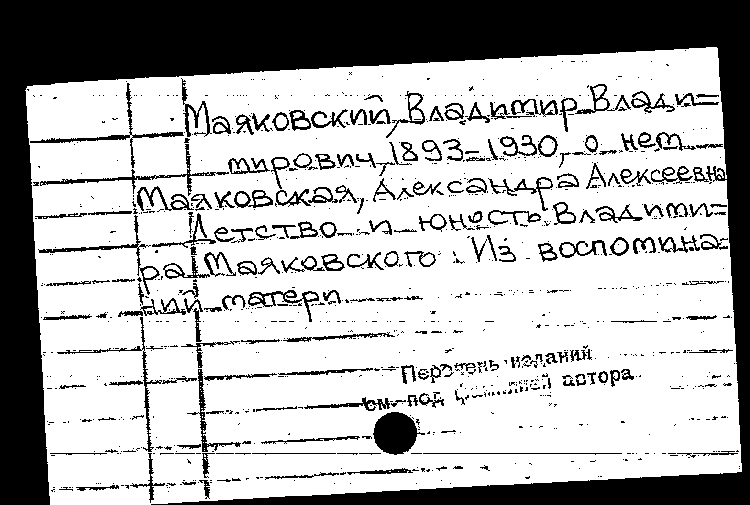 Маяковский, Владимир Влади=
мирович, 1893-1930, о нем
Маяковская, Александра Алексеевна
Детство и юность Владими=
ра Маяковского. Из воспомина=
ний матери
Перечень изданий
см. под фамилией автора